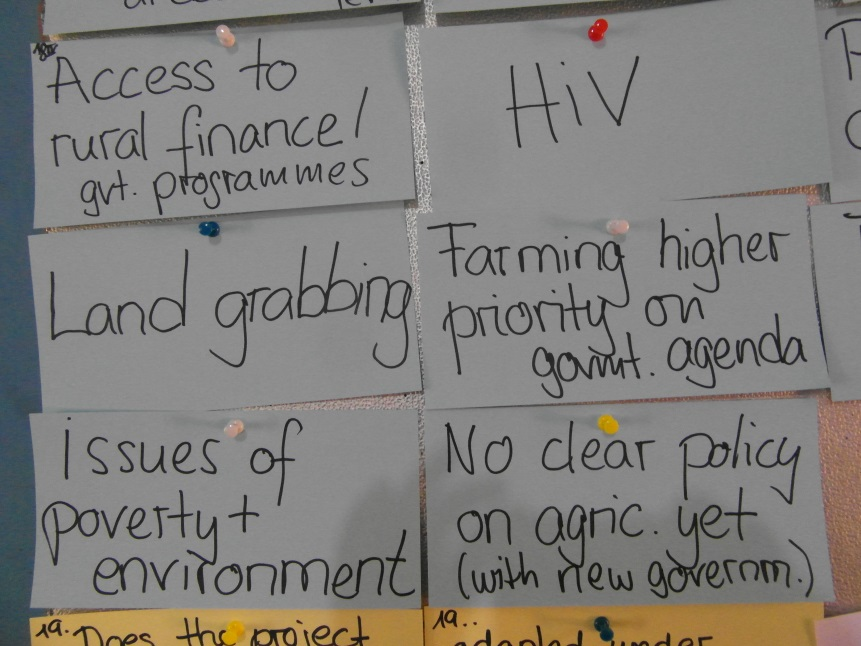 Access to
rural finance/
gvt. programmes
HiV
Land grabbing
Farming higher
priority on
govmt. agenda
issues of
poverty +
environment
No clear policy
on agric. yet
(with new governm.)
19. Does the project
19..
adapted under